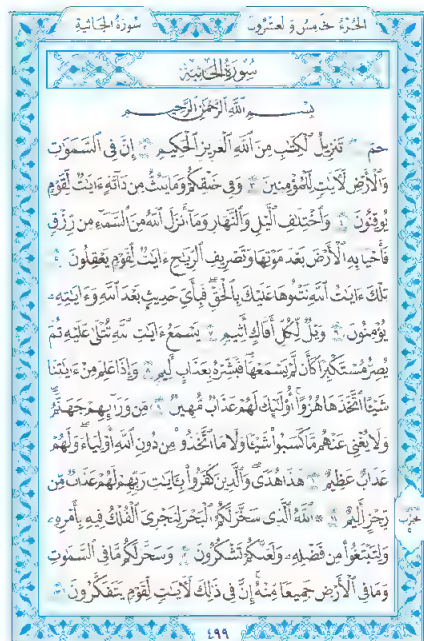 الجزء خمس والعشرون سورة الجاثية
سُورَةُ الجَاثِيَةِ
بِسْمِ اللَّهِ الرَّحْمَٰنِ الرَّحِيمِ
حمٓ ١ تَنزِيلُ الْكِتَٰبِ مِنَ اللَّهِ الْعَزِيزِ الْحَكِيمِ ٢ إِنَّ فِي السَّمَٰوَٰتِ
وَالْأَرْضِ لَآيَٰتٍ لِّلْمُؤْمِنِينَ ٣ وَفِي خَلْقِكُمْ وَمَا يَبُثُّ مِن دَآبَّةٍ ءَايَٰتٌ لِّقَوْمٍ
يُوقِنُونَ ٤ وَاخْتِلَٰفِ الَّيْلِ وَالنَّهَارِ وَمَآ أَنزَلَ اللَّهُ مِنَ السَّمَآءِ مِن رِّزْقٍ
فَأَحْيَا بِهِ الْأَرْضَ بَعْدَ مَوْتِهَا وَتَصْرِيفِ الرِّيَٰحِ ءَايَٰتٌ لِّقَوْمٍ يَعْقِلُونَ ٥
تِلْكَ ءَايَٰتُ اللَّهِ نَتْلُوهَا عَلَيْكَ بِالْحَقِّ فَبِأَيِّ حَدِيثٍ بَعْدَ اللَّهِ وَءَايَٰتِهِۦ
يُؤْمِنُونَ ٦ وَيْلٌ لِّكُلِّ أَفَّاكٍ أَثِيمٍ ٧ يَسْمَعُ ءَايَٰتِ اللَّهِ تُتْلَىٰ عَلَيْهِ ثُمَّ
يُصِرُّ مُسْتَكْبِرًا كَأَن لَّمْ يَسْمَعْهَا فَبَشِّرْهُ بِعَذَابٍ أَلِيمٍ ٨ وَإِذَا عَلِمَ مِنْ ءَايَٰتِنَا
شَيْئًا اتَّخَذَهَا هُزُوًا أُو۟لَٰٓئِكَ لَهُمْ عَذَابٌ مُّهِينٌ ٩ مِّن وَرَآئِهِمْ جَهَنَّمُ
وَلَا يُغْنِي عَنْهُم مَّا كَسَبُوا۟ شَيْئًا وَلَا مَا اتَّخَذُوا۟ مِن دُونِ اللَّهِ أَوْلِيَآءَ وَلَهُمْ
عَذَابٌ عَظِيمٌ ١٠ هَٰذَا هُدًى وَالَّذِينَ كَفَرُوا۟ بِـَٔايَٰتِ رَبِّهِمْ لَهُمْ عَذَابٌ مِّن
رِّجْزٍ أَلِيمٌ ١١ اللَّهُ الَّذِي سَخَّرَ لَكُمُ الْبَحْرَ لِتَجْرِيَ الْفُلْكُ فِيهِ بِأَمْرِهِۦ
وَلِتَبْتَغُوا۟ مِن فَضْلِهِۦ وَلَعَلَّكُمْ تَشْكُرُونَ ١٢ وَسَخَّرَ لَكُم مَّا فِي السَّمَٰوَٰتِ
وَمَا فِي الْأَرْضِ جَمِيعًا مِّنْهُ إِنَّ فِي ذَٰلِكَ لَآيَٰتٍ لِّقَوْمٍ يَتَفَكَّرُونَ ١٣
حزب
٤٩٩